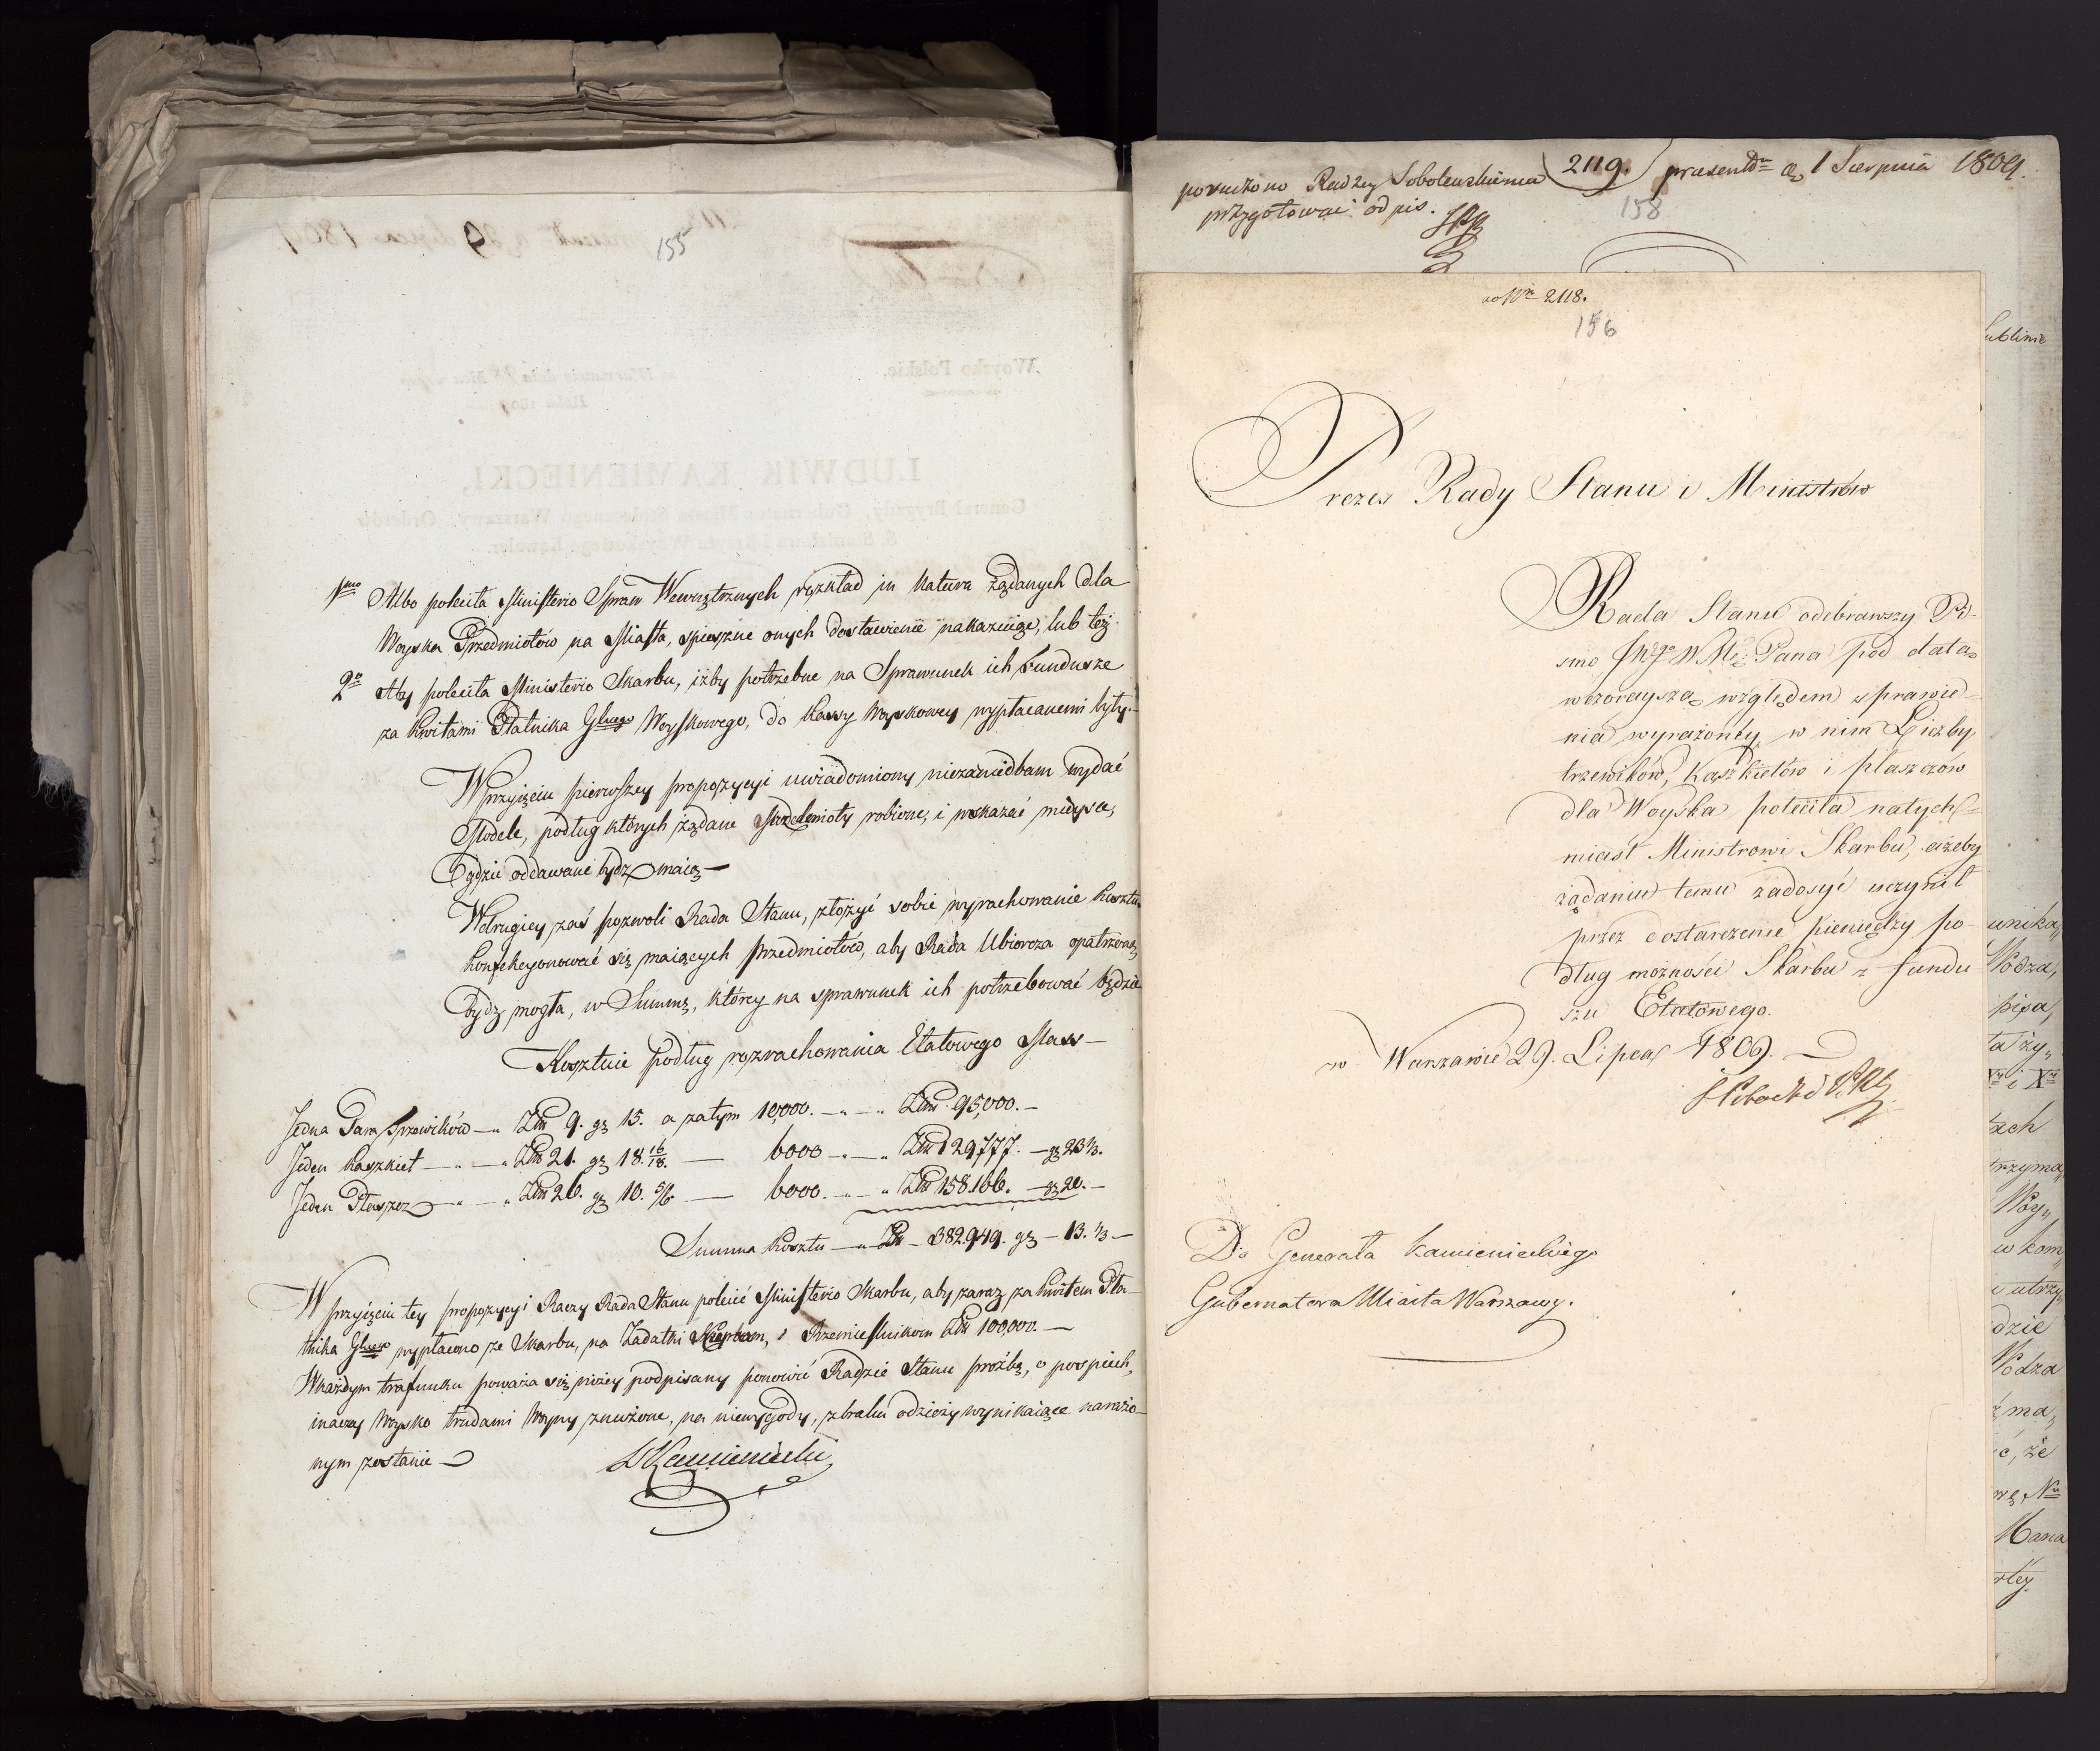 155
1mo Albo poleciła Ministerio Spraw Wewnętrznych rozkład in natura żądanych dla
Woyska Przedmiotów na Miasta, spieszne onych dostawienie nakazuiąc, lub też
2o Aby poleciła Ministerio Skarbu, iżby potrzebne na Sprawunek ich Fundusze
za kwitami Płatnika Głnego Woyskowego, do kassy Woyskowey wypłacanemi były.
W przyięciu pierwszey propozycyi uwiadomiony niezaniedbam wydać
Modele, podług których żądane Przedmioty robione, i wskazać mieysca,
gdzie oddawane bydź maią —
W drugiey zaś pozwoli Rada Stanu, złożyć sobie wyrachowanie kosztu
konfekcyonować się maiących przedmiotów, aby Rada Ubiorcza opatrzoną
bydź mogła, w Summę, którey na sprawunek ich potrzebować będzie
Kosztuie podług rozrachowania Etatowego Mass —
Jedna Para Trzewików — " Złł 9. gr 15. a zatym 10,000. — " — " Złł. 95,000. —
Jeden kaszkiet — " — " Złł 21. gr 18. 16/18. — 6000 — " — " Złł 129,777. — gr 23 1/3.
Jeden Płaszcz — " — " Złł 26. gr 10. 5/6 — 6000. — " — " Złł 158,166. — gr 20. —
Summa kosztu — " Złł — 382.949. gr — 13. 1/3 —
W przyięciu tey propozycyi Raczy Rada Stanu polecić Ministerio Skarbu, aby zaraz za kwitem Pła-
tnika Głnego wypłacono ze Skarbu, na Zadatki Kupcom, i Rzemieslnikom Złł 100,000. —
W każdym trafunku poważa się niżey podpisany ponowić Radzie Stanu proźbę, o pospiech,
inaczey Woysko trudami Woyny znużone, na niewygody, z braku odzieży wynikaiące narażo-
nym zostanie —
LKamieniecki
poruczono Radzcy Sobolewskiemu
przygotować odpis.
2119. praesentn d. 1 Sierpnia 1809.
158
ad Nrn 2118.
156
Prezes Rady Stanu i Ministrów
Rada Stanu odebrawszy Pi-
smo JWgo WMć Pana pod datą
wczorayszą względem sprawie-
nia wyrażoney w nim Liczby
trzewików, kaszkietów i płaszczów
dla Woyska poleciła natych-
miast Ministrowi Skarbu, ażeby
żądaniu temu zadosyć uczynił
przez dostarczenie pieniędzy po-
dług możności Skarbu z fundu
szu Etatowego.
w Warszawie 29. Lipca 1809. —
Do Generała Kamienieckiego
Gubernatora Miasta Warszawy.